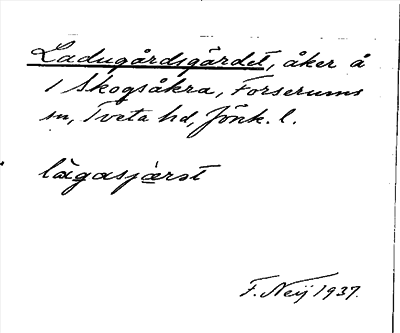 Ladugårdsgärdet, åker å
1 Skogsåkra, Forserums
sn, Tveta hd, Jönk. l.
lägasjærst
F. Neij 1937.